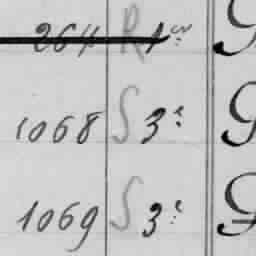 264 R 1er G
1068 S 3e G
1069 S 3e G